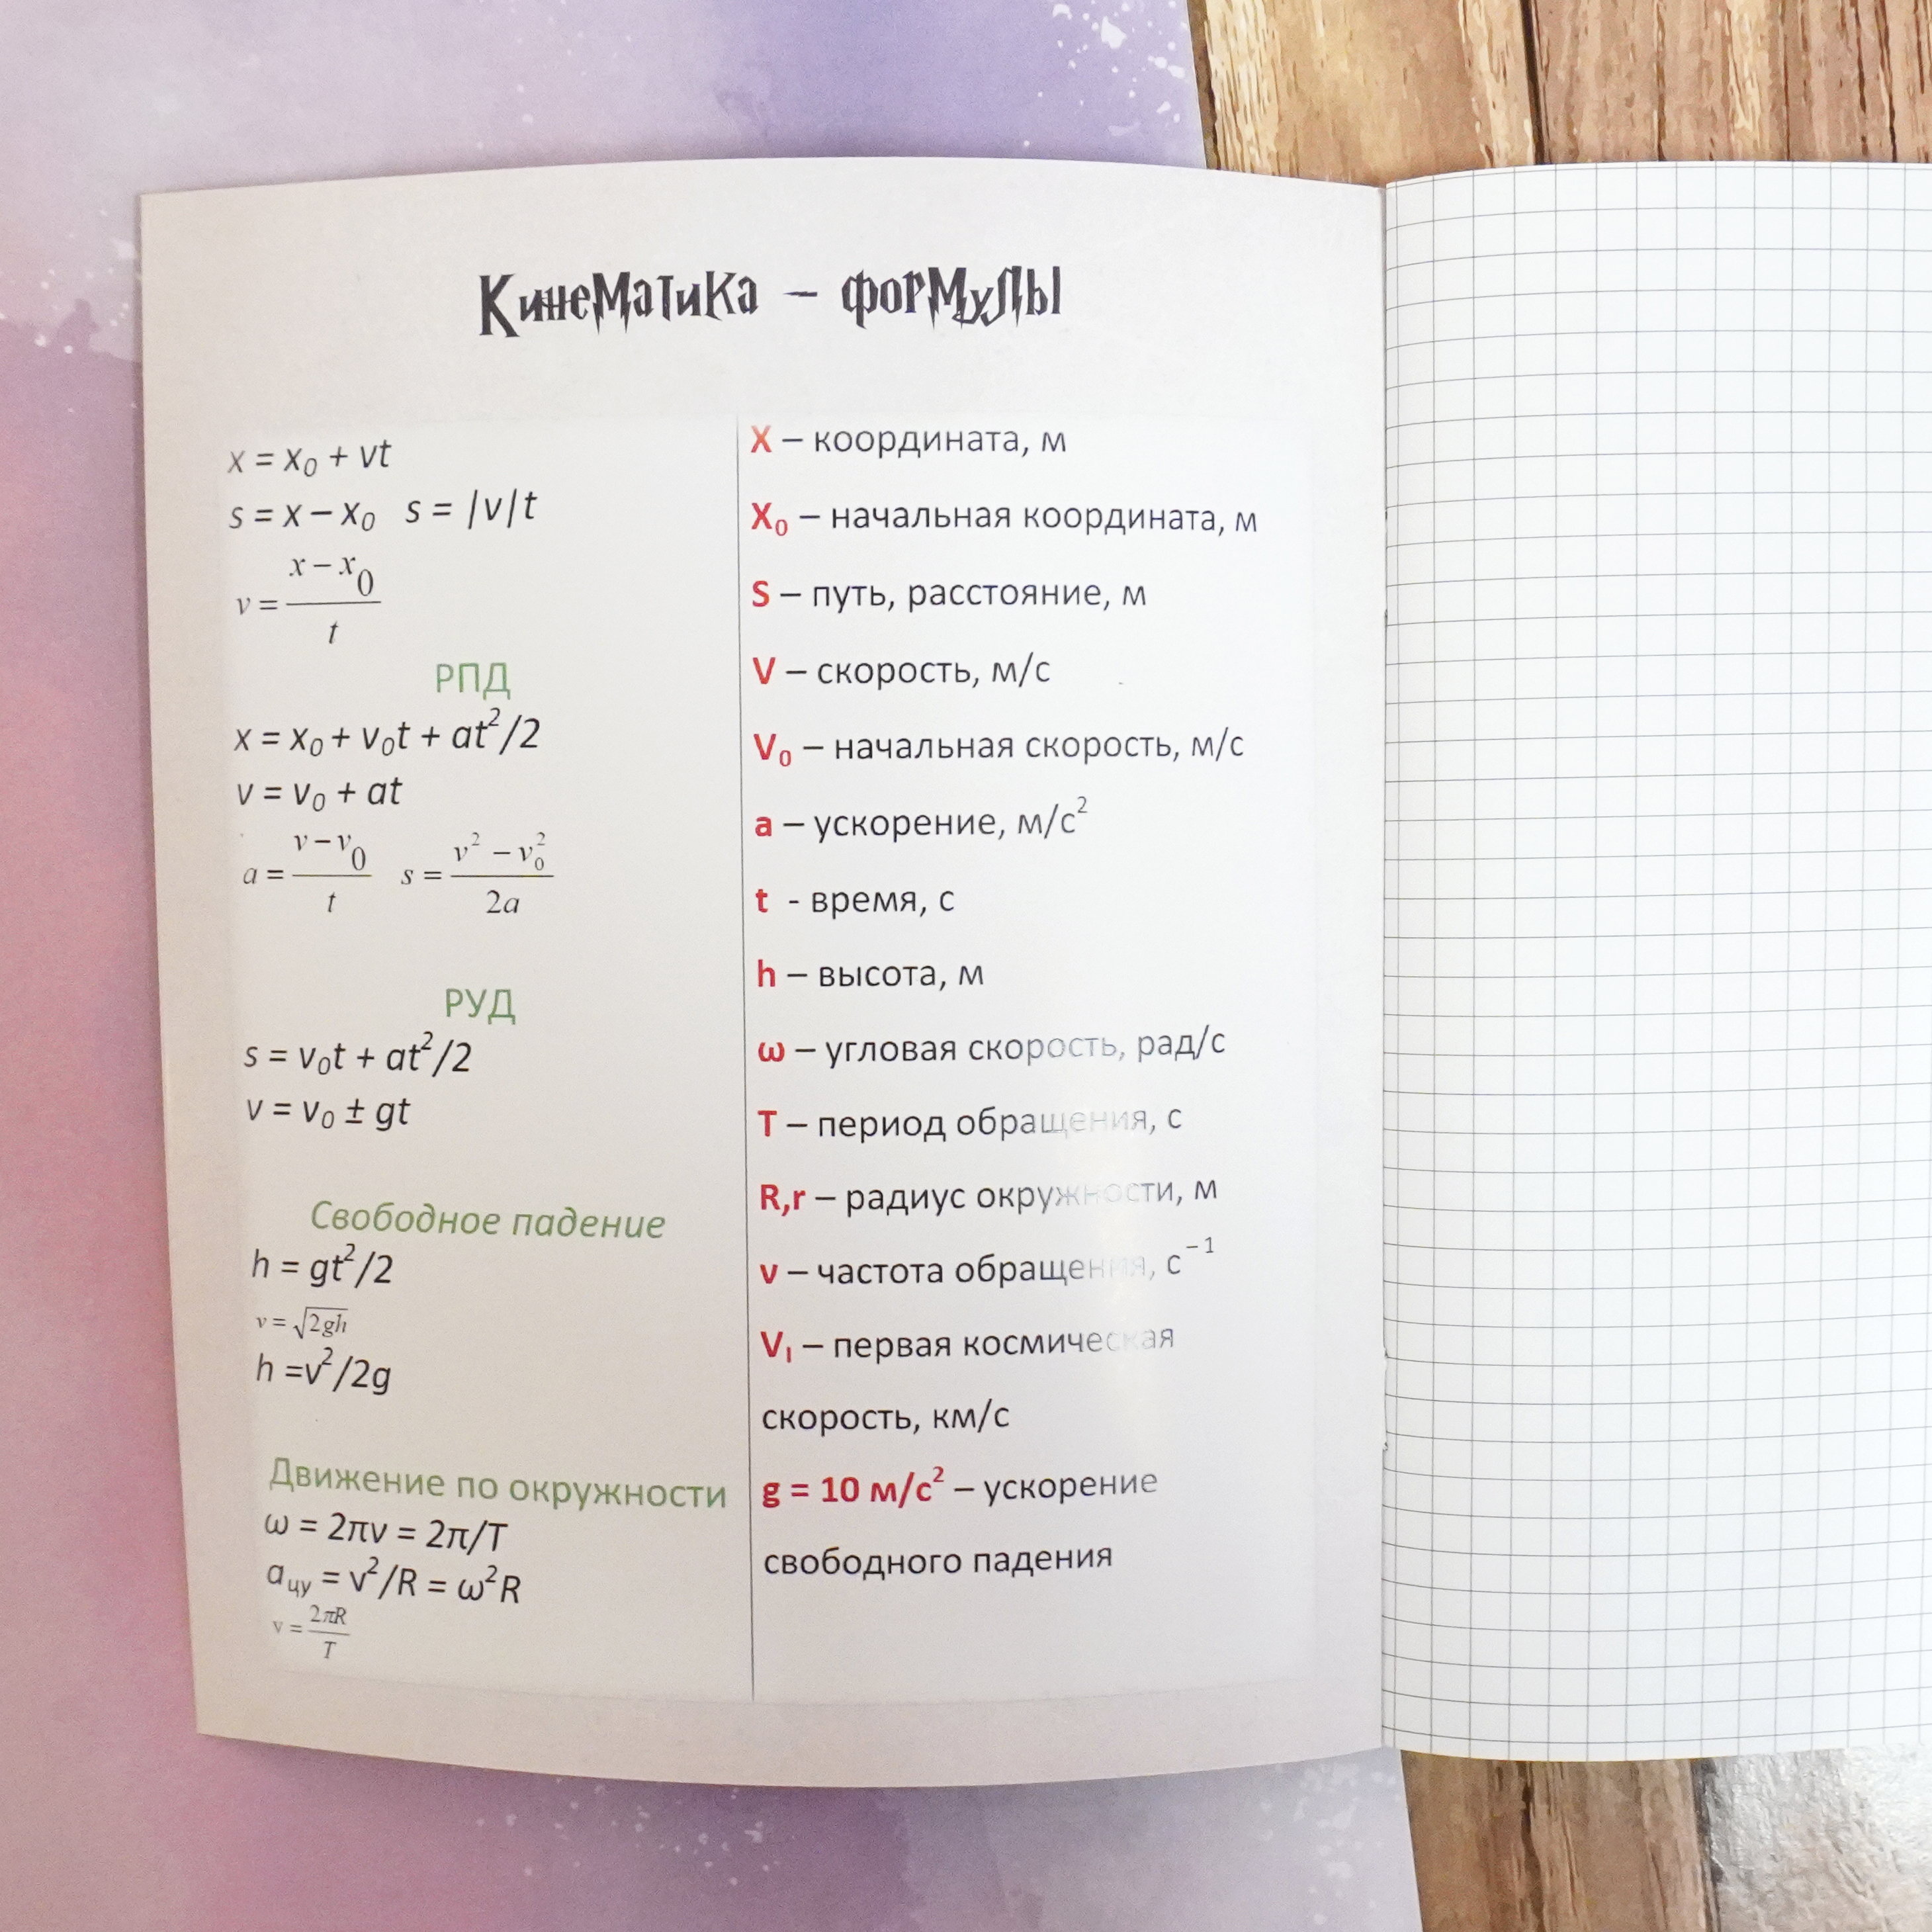 Кинематика – формулы
x = x₀ + vt
s = x – x₀ s = |v|t
v = (x – x₀)/t
РПД
x = x₀ + v₀t + at²/2
v = v₀ + at
a = (v – v₀)/t s = (v² – v₀²)/2a
РУД
s = v₀t + at²/2
v = v₀ ± gt
Свободное падение
h = gt²/2
v = √2gh
h =v²/2g
Движение по окружности
ω = 2πν = 2π/T
aцу = v²/R = ω²R
v = 2πR/T
X – координата, м
X₀ – начальная координата, м
S – путь, расстояние, м
V – скорость, м/с
V₀ – начальная скорость, м/с
a – ускорение, м/с²
t - время, с
h – высота, м
ω – угловая скорость, рад/с
T – период обращения, с
R,r – радиус окружности, м
ν – частота обращения, с⁻¹
V₁ – первая космическая
скорость, км/с
g = 10 м/с² – ускорение
свободного падения